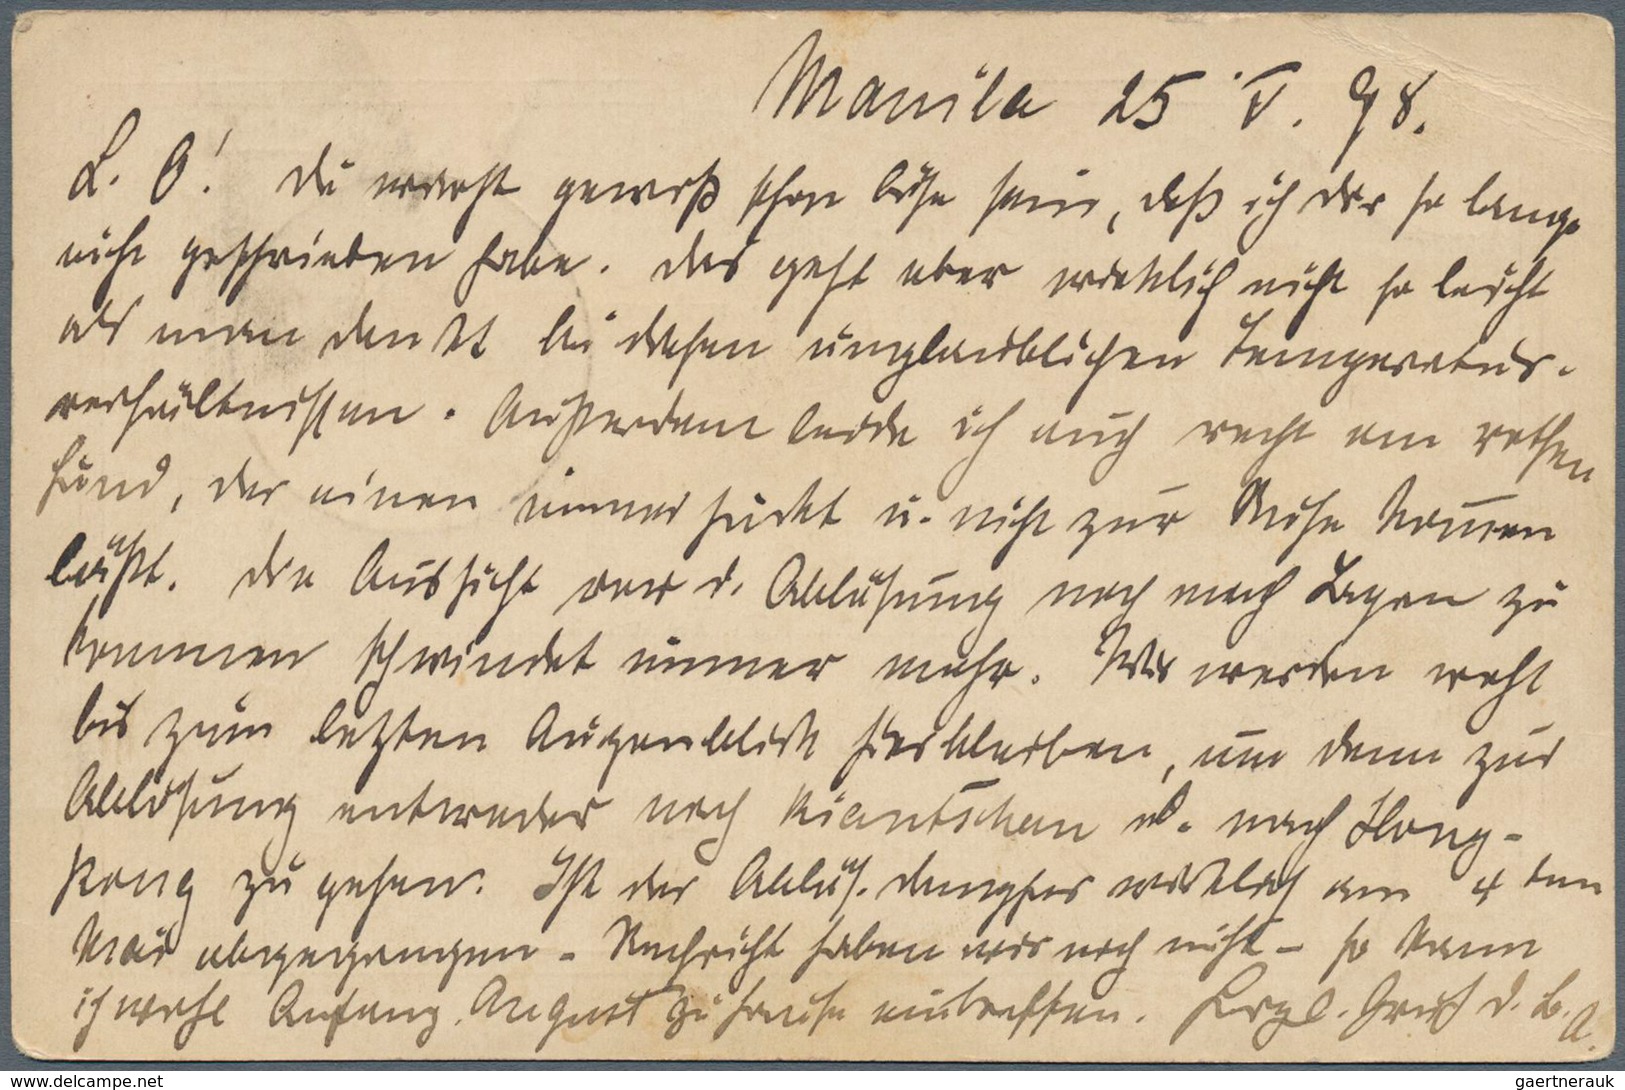 Manila 25 V. 98.
L. O! Du wirst gewiß schon böse sein, daß ich dir so lange
nicht geschrieben habe. Das geht aber wirklich nicht so leicht
als man denkt bei diesen unglaublichen Temperatur-
verhältnissen. Außerdem leide ich auch recht am rothen
Hund, der einen immer juckt u. nicht zur Ruhe kommen
läßt. Die Aussicht vor d. Ablösung noch nach Japan zu
kommen schwindet immer mehr. Wir werden wohl
bis zum letzten Augenblick hierbleiben, um dann zur
Ablösung entweder nach Kiautschau od. nach Hong-
kong zu gehen. Ist der Ablös. dampfer wirklich am 4ten
Mai abgegangen - Nachricht haben wir noch nicht - so kann
ich wohl Anfang August zu Hause eintreffen. Herzl. Gruß d. b. A.
www.delcampe.net
gaertnerauk